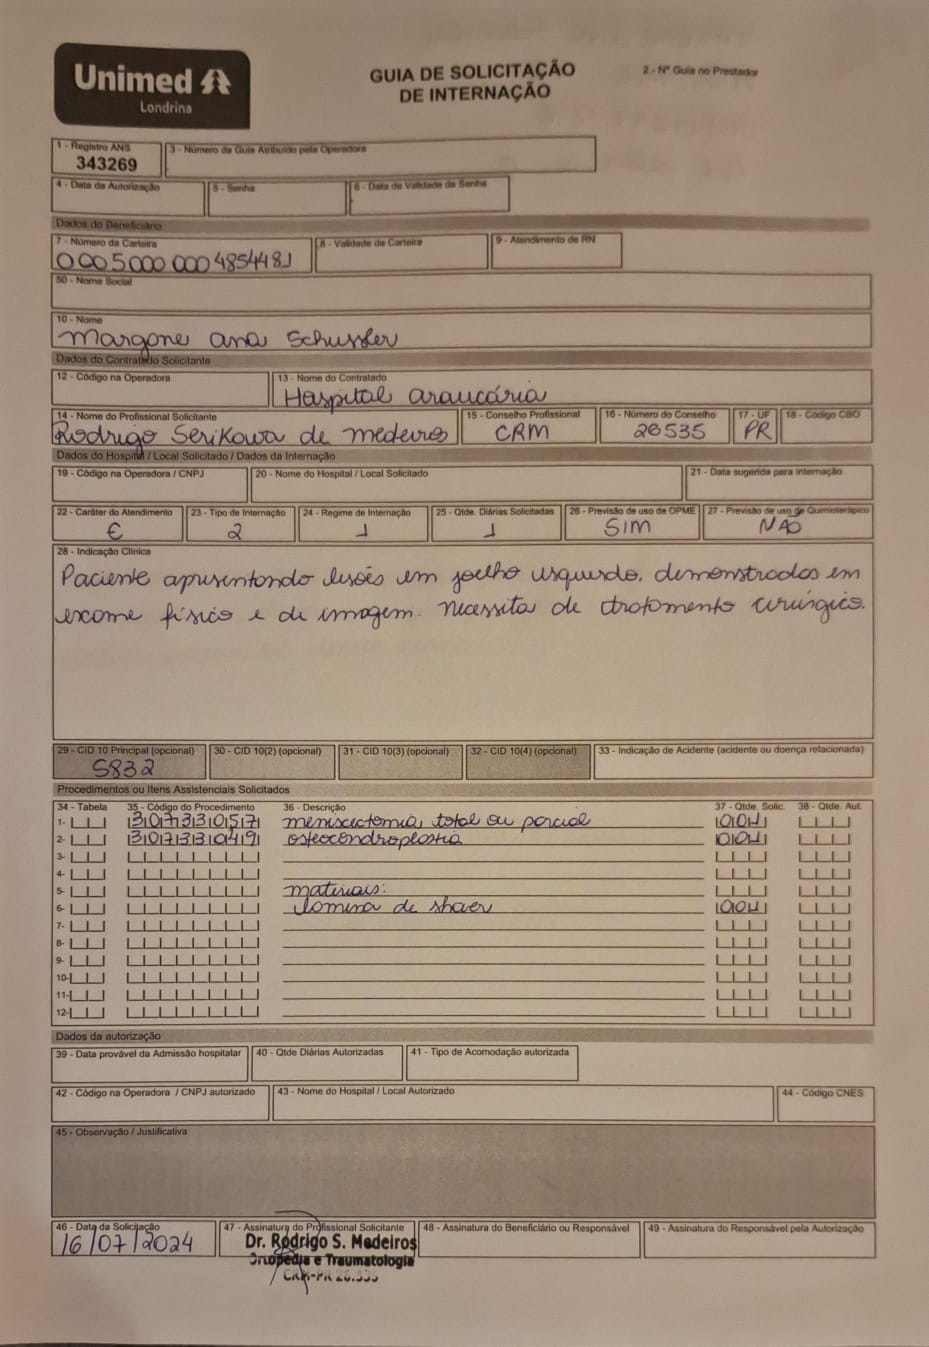 Unimed
Londrina
GUIA DE SOLICITAÇÃO
DE INTERNAÇÃO
2 - Nº Guia no Prestador
1 - Registro ANS
343269
3 - Número da Guia Atribuído pela Operadora
4 - Data da Autorização
5 - Senha
6 - Data de Validade da Senha
Dados do Beneficiário
7 - Número da Carteira
0005000000485448
8 - Validade da Carteira
9 - Atendimento de RN
50 - Nome Social
10 - Nome
Margone ana Schussler
Dados do Contratado Solicitante
12 - Código na Operadora
13 - Nome do Contratado
Hospital araucária
14 - Nome do Profissional Solicitante
Rodrigo Serikawa de medeiros
15 - Conselho Profissional
CRM
16 - Número do Conselho
26535
17 - UF
PR
18 - Código CBO
Dados do Hospital / Local Solicitado / Dados da Internação
19 - Código na Operadora / CNPJ
20 - Nome do Hospital / Local Solicitado
21 - Data sugerida para internação
22 - Caráter do Atendimento
E
23 - Tipo de Internação
2
24 - Regime de Internação
1
25 - Qtde. Diárias Solicitadas
1
26 - Previsão de uso de OPME
SIM
27 - Previsão de uso de Quimioterápico
NÃO
28 - Indicação Clínica
Paciente apresentando lesões em joelho esquerdo, demonstrados em
exame físico e de imagem. necessita de tratamento cirúrgico.
29 - CID 10 Principal (opcional)
S832
30 - CID 10(2) (opcional)
31 - CID 10(3) (opcional)
32 - CID 10(4) (opcional)
33 - Indicação de Acidente (acidente ou doença relacionada)
Procedimentos ou Itens Assistenciais Solicitados
34 - Tabela 35 - Código do Procedimento 36 - Descrição 37 - Qtde. Solic. 38 - Qtde. Aut.
1- 30733057 meniscectomia total ou parcial 001
2- 30733049 osteocondroplastia 001
3-
4-
5- materiais:
6- lamina de shaver 001
7-
8-
9-
10-
11-
12-
Dados da autorização
39 - Data provável da Admissão hospitalar
40 - Qtde Diárias Autorizadas
41 - Tipo de Acomodação autorizada
42 - Código na Operadora / CNPJ autorizado
43 - Nome do Hospital / Local Autorizado
44 - Código CNES
45 - Observação / Justificativa
46 - Data da Solicitação
16/07/2024
47 - Assinatura do Profissional Solicitante
Dr. Rodrigo S. Medeiros
Ortopedia e Traumatologia
CRM-PR 26.535
48 - Assinatura do Beneficiário ou Responsável
49 - Assinatura do Responsável pela Autorização